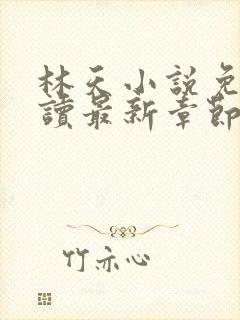 林天小說免
讀最新章節
竹亦心